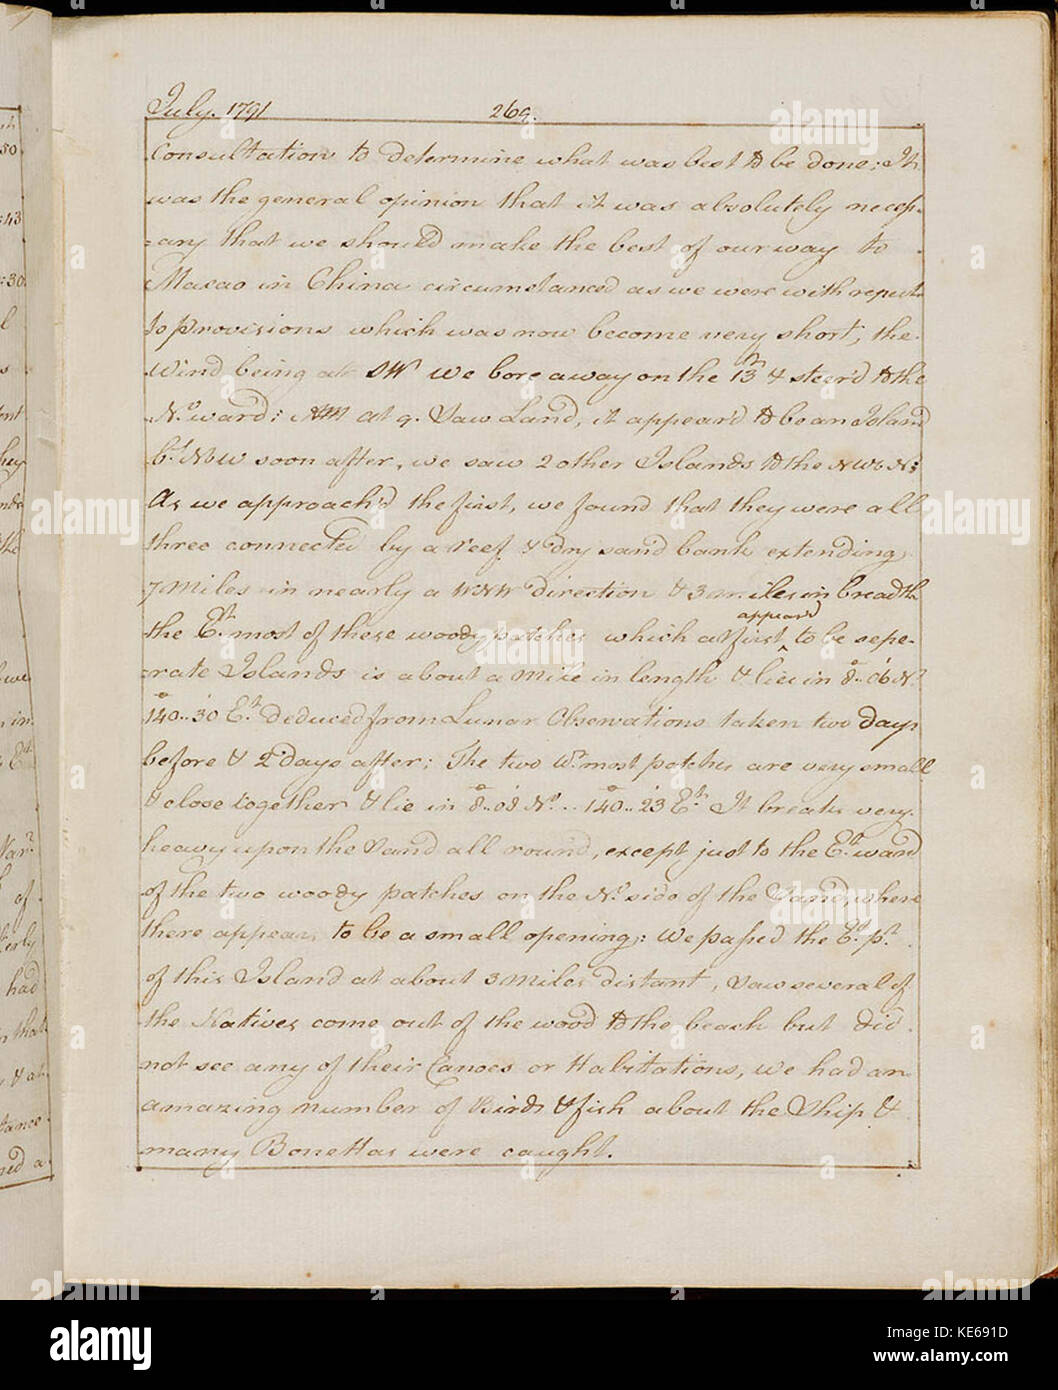 July. 1791 269.
Consultation to determine what was best to be done; It
was the general opinion that it was absolutely necess-
-ary that we should make the best of our way to
Macao in China circumstanced as we were with respect
to provisions which was now become very short; the
Wind being at SW we bore away on the 13th & steer'd to the
No. ward: AM at 9. Saw Land, it appear'd to be an Island
bg. NbW soon after, we saw 2 other Islands to the NWbN;
As we approach'd the first, we found that they were all
three connected by a reef & dry sand bank extending
7 miles in nearly a WNW direction & 3 miles in breadth
the Et. most of these woody patches which at first appear'd to be sepe-
-rate Islands is about a Mile in length & lies in 8°..06' No.
140°..30' Et. deduced from Lunar Observations taken two days
before & 2 days after; The two Wr. most patches are very small
& close together & lie in 8°..08' No... 140°..23' Et. It breaks very
heavy upon the Sand all round, except just to the Et. ward
of the two woody patches on the No. side of the Sand, where
there appears to be a small opening: We passed the Et. pt.
of this Island at about 3 Miles distant, Saw several of
the Natives come out of the wood to the beach but did
not see any of their Canoes or Habitations, we had an
amazing number of Birds & fish about the Ship &
many Bonettas were caught.
50
43
:30
had
alamy
Image ID: KE691D
www.alamy.com